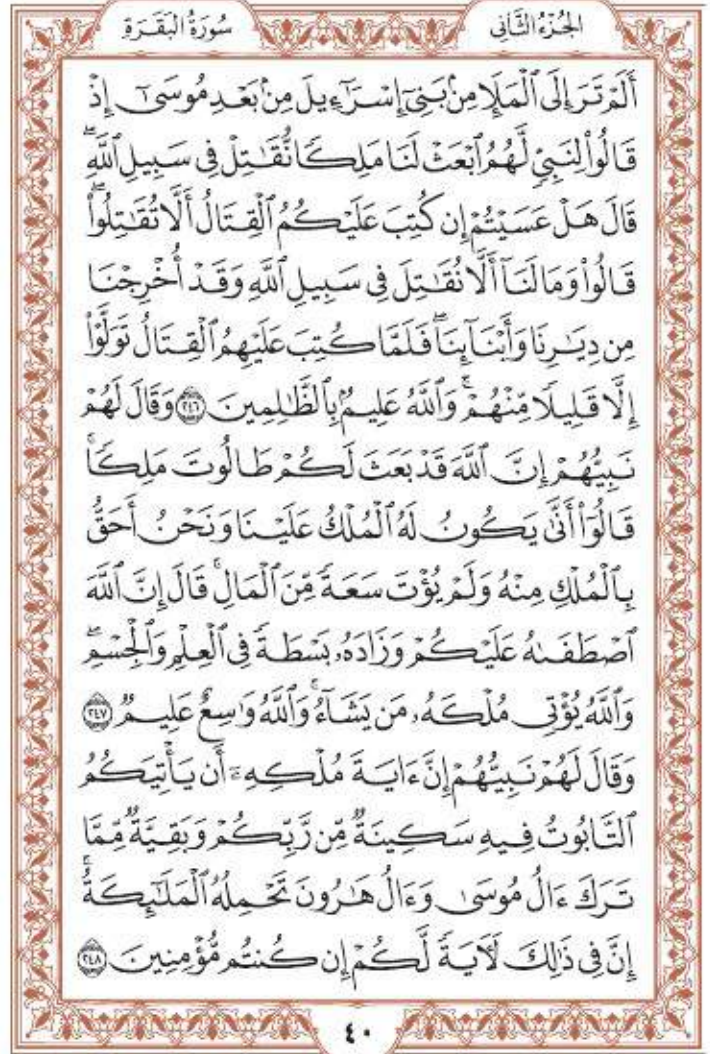 الجُزْءُ الثَّانِي سُورَةُ البَقَرَةِ
أَلَمْ تَرَ إِلَى ٱلْمَلَإِ مِنۢ بَنِىٓ إِسْرَٰٓءِيلَ مِنۢ بَعْدِ مُوسَىٰٓ إِذْ
قَالُوا۟ لِنَبِىٍّ لَّهُمُ ٱبْعَثْ لَنَا مَلِكًا نُّقَٰتِلْ فِى سَبِيلِ ٱللَّهِۖ
قَالَ هَلْ عَسَيْتُمْ إِن كُتِبَ عَلَيْكُمُ ٱلْقِتَالُ أَلَّا تُقَٰتِلُوا۟ۖ
قَالُوا۟ وَمَا لَنَآ أَلَّا نُقَٰتِلَ فِى سَبِيلِ ٱللَّهِ وَقَدْ أُخْرِجْنَا
مِن دِيَٰرِنَا وَأَبْنَآئِنَاۖ فَلَمَّا كُتِبَ عَلَيْهِمُ ٱلْقِتَالُ تَوَلَّوْا۟
إِلَّا قَلِيلًا مِّنْهُمْۗ وَٱللَّهُ عَلِيمٌۢ بِٱلظَّٰلِمِينَ ٢٤٦ وَقَالَ لَهُمْ
نَبِيُّهُمْ إِنَّ ٱللَّهَ قَدْ بَعَثَ لَكُمْ طَالُوتَ مَلِكًاۚ
قَالُوٓا۟ أَنَّىٰ يَكُونُ لَهُ ٱلْمُلْكُ عَلَيْنَا وَنَحْنُ أَحَقُّ
بِٱلْمُلْكِ مِنْهُ وَلَمْ يُؤْتَ سَعَةً مِّنَ ٱلْمَالِۚ قَالَ إِنَّ ٱللَّهَ
ٱصْطَفَىٰهُ عَلَيْكُمْ وَزَادَهُۥ بَسْطَةً فِى ٱلْعِلْمِ وَٱلْجِسْمِۖ
وَٱللَّهُ يُؤْتِى مُلْكَهُۥ مَن يَشَآءُۚ وَٱللَّهُ وَٰسِعٌ عَلِيمٌ ٢٤٧
وَقَالَ لَهُمْ نَبِيُّهُمْ إِنَّ ءَايَةَ مُلْكِهِۦٓ أَن يَأْتِيَكُمُ
ٱلتَّابُوتُ فِيهِ سَكِينَةٌ مِّن رَّبِّكُمْ وَبَقِيَّةٌ مِّمَّا
تَرَكَ ءَالُ مُوسَىٰ وَءَالُ هَٰرُونَ تَحْمِلُهُ ٱلْمَلَٰٓئِكَةُۚ
إِنَّ فِى ذَٰلِكَ لَءَايَةً لَّكُمْ إِن كُنتُم مُّؤْمِنِينَ ٢٤٨
٤٠